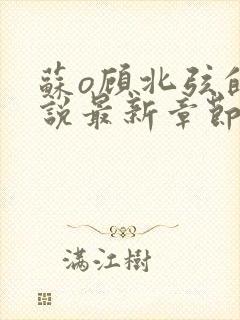 蘇o顾北弦的
說最新章節
满江樹